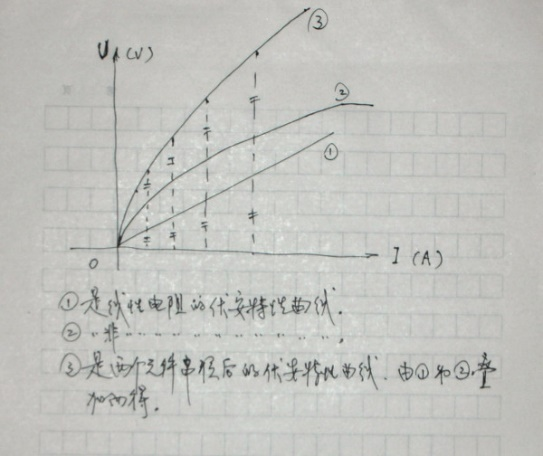 U (V)
③
②
①
0
I (A)
①是线性电阻的伏安特性曲线.
②〃非〃〃〃〃〃〃〃〃〃〃.
③是两个元件串径后的伏安特性曲线.由①和②.叠
加而得.